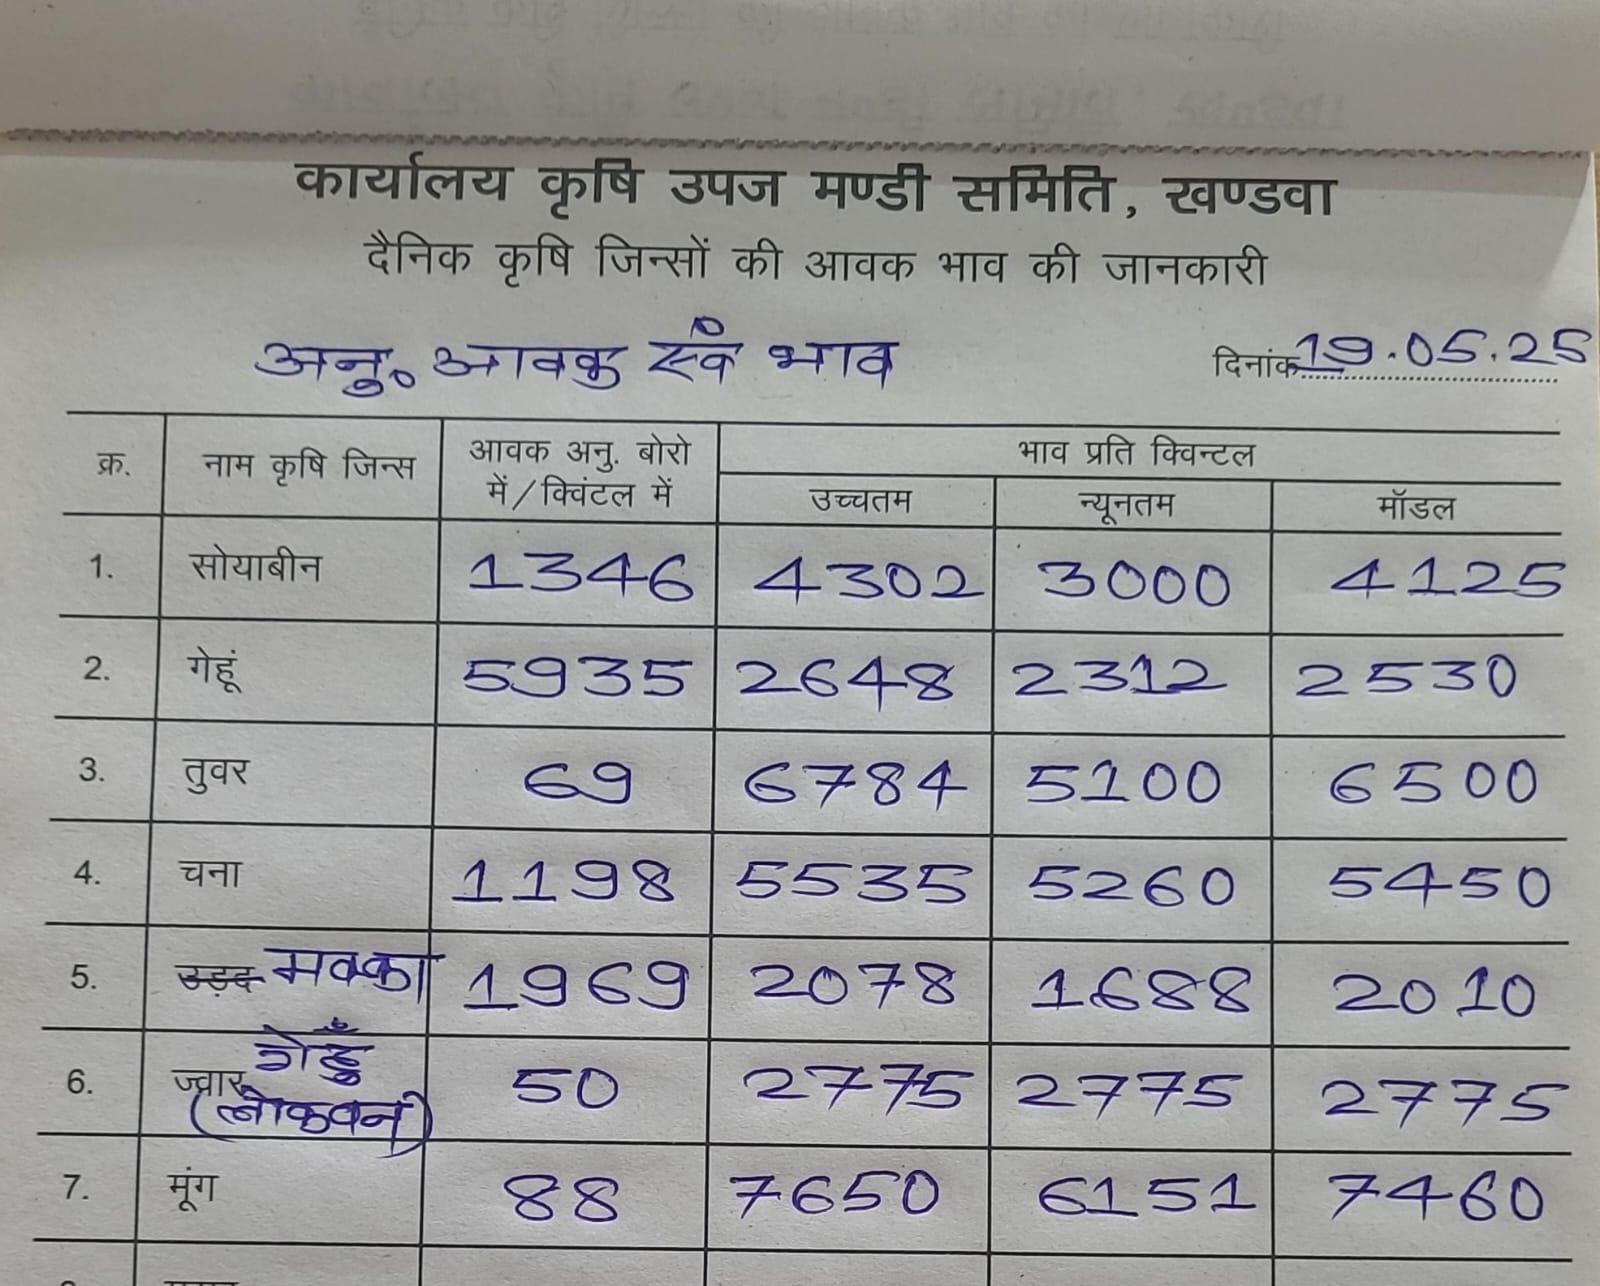 कार्यालय कृषि उपज मण्डी समिति, खण्डवा
दैनिक कृषि जिन्सों की आवक भाव की जानकारी
अनु. आवक एवं भाव दिनांक 19.05.25
क्र. नाम कृषि जिन्स आवक अनु. बोरो में/क्विंटल में भाव प्रति क्विन्टल
उच्चतम न्यूनतम मॉडल
1. सोयाबीन 1346 4302 3000 4125
2. गेहूं 5935 2648 2312 2530
3. तुवर 69 6784 5100 6500
4. चना 1198 5535 5260 5450
5. उड़द मक्का 1969 2078 1688 2010
6. ज्वार गेहुँ (लोकवन) 50 2775 2775 2775
7. मूंग 88 7650 6151 7460